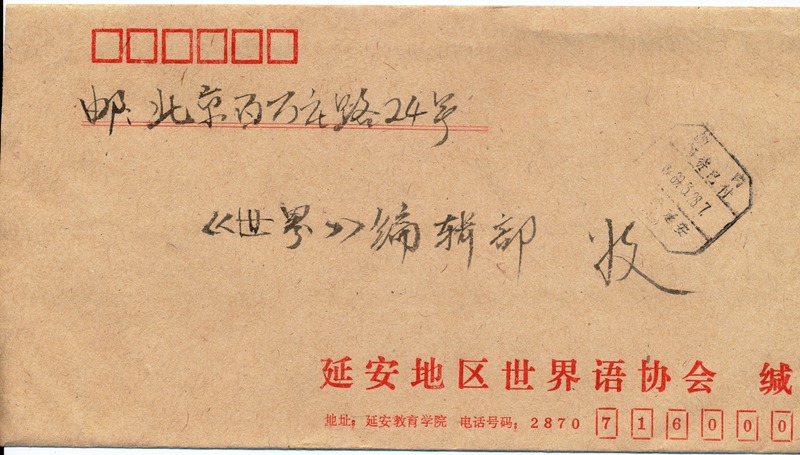 邮: 北京百万庄路24号
《世界》编辑部 收
国内
邮资已付
延安
延安地区世界语协会 缄
地址：延安教育学院 电话号码：2870 716000